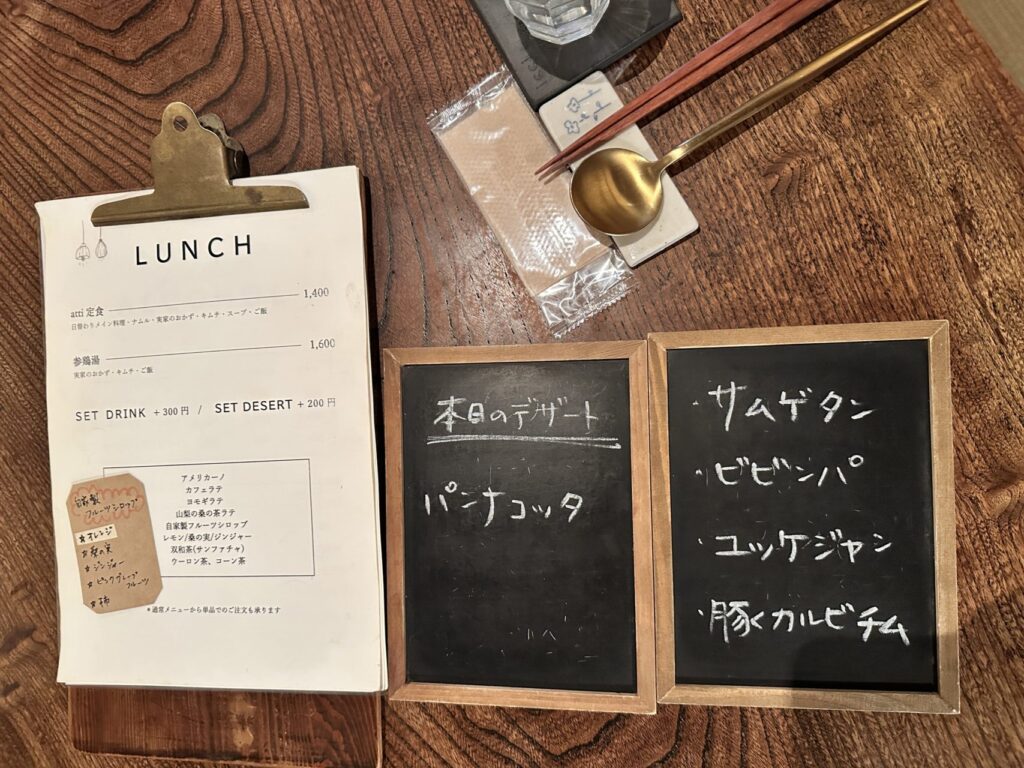 LUNCH
atti 定食 1,400
日替わりメイン料理・ナムル・実家のおかず・キムチ・スープ・ご飯
参鶏湯 1,600
実家のおかず・キムチ・ご飯
SET DRINK +300円 / SET DESERT +200円
アメリカーノ
カフェラテ
ヨモギラテ
山梨の桑の茶ラテ
自家製フルーツシロップ
レモン/桑の実/ジンジャー
双和茶(サンファチャ)
ウーロン茶、コーン茶
*通常メニューから単品でのご注文も承ります
自家製
フルーツシロップ
★オレンジ
★桑の実
★ジンジャー
★ピンクグレープ
フルーツ
★柿
本日のデザート
パンナコッタ
・サムゲタン
・ビビンパ
・ユッケジャン
・豚カルビチム